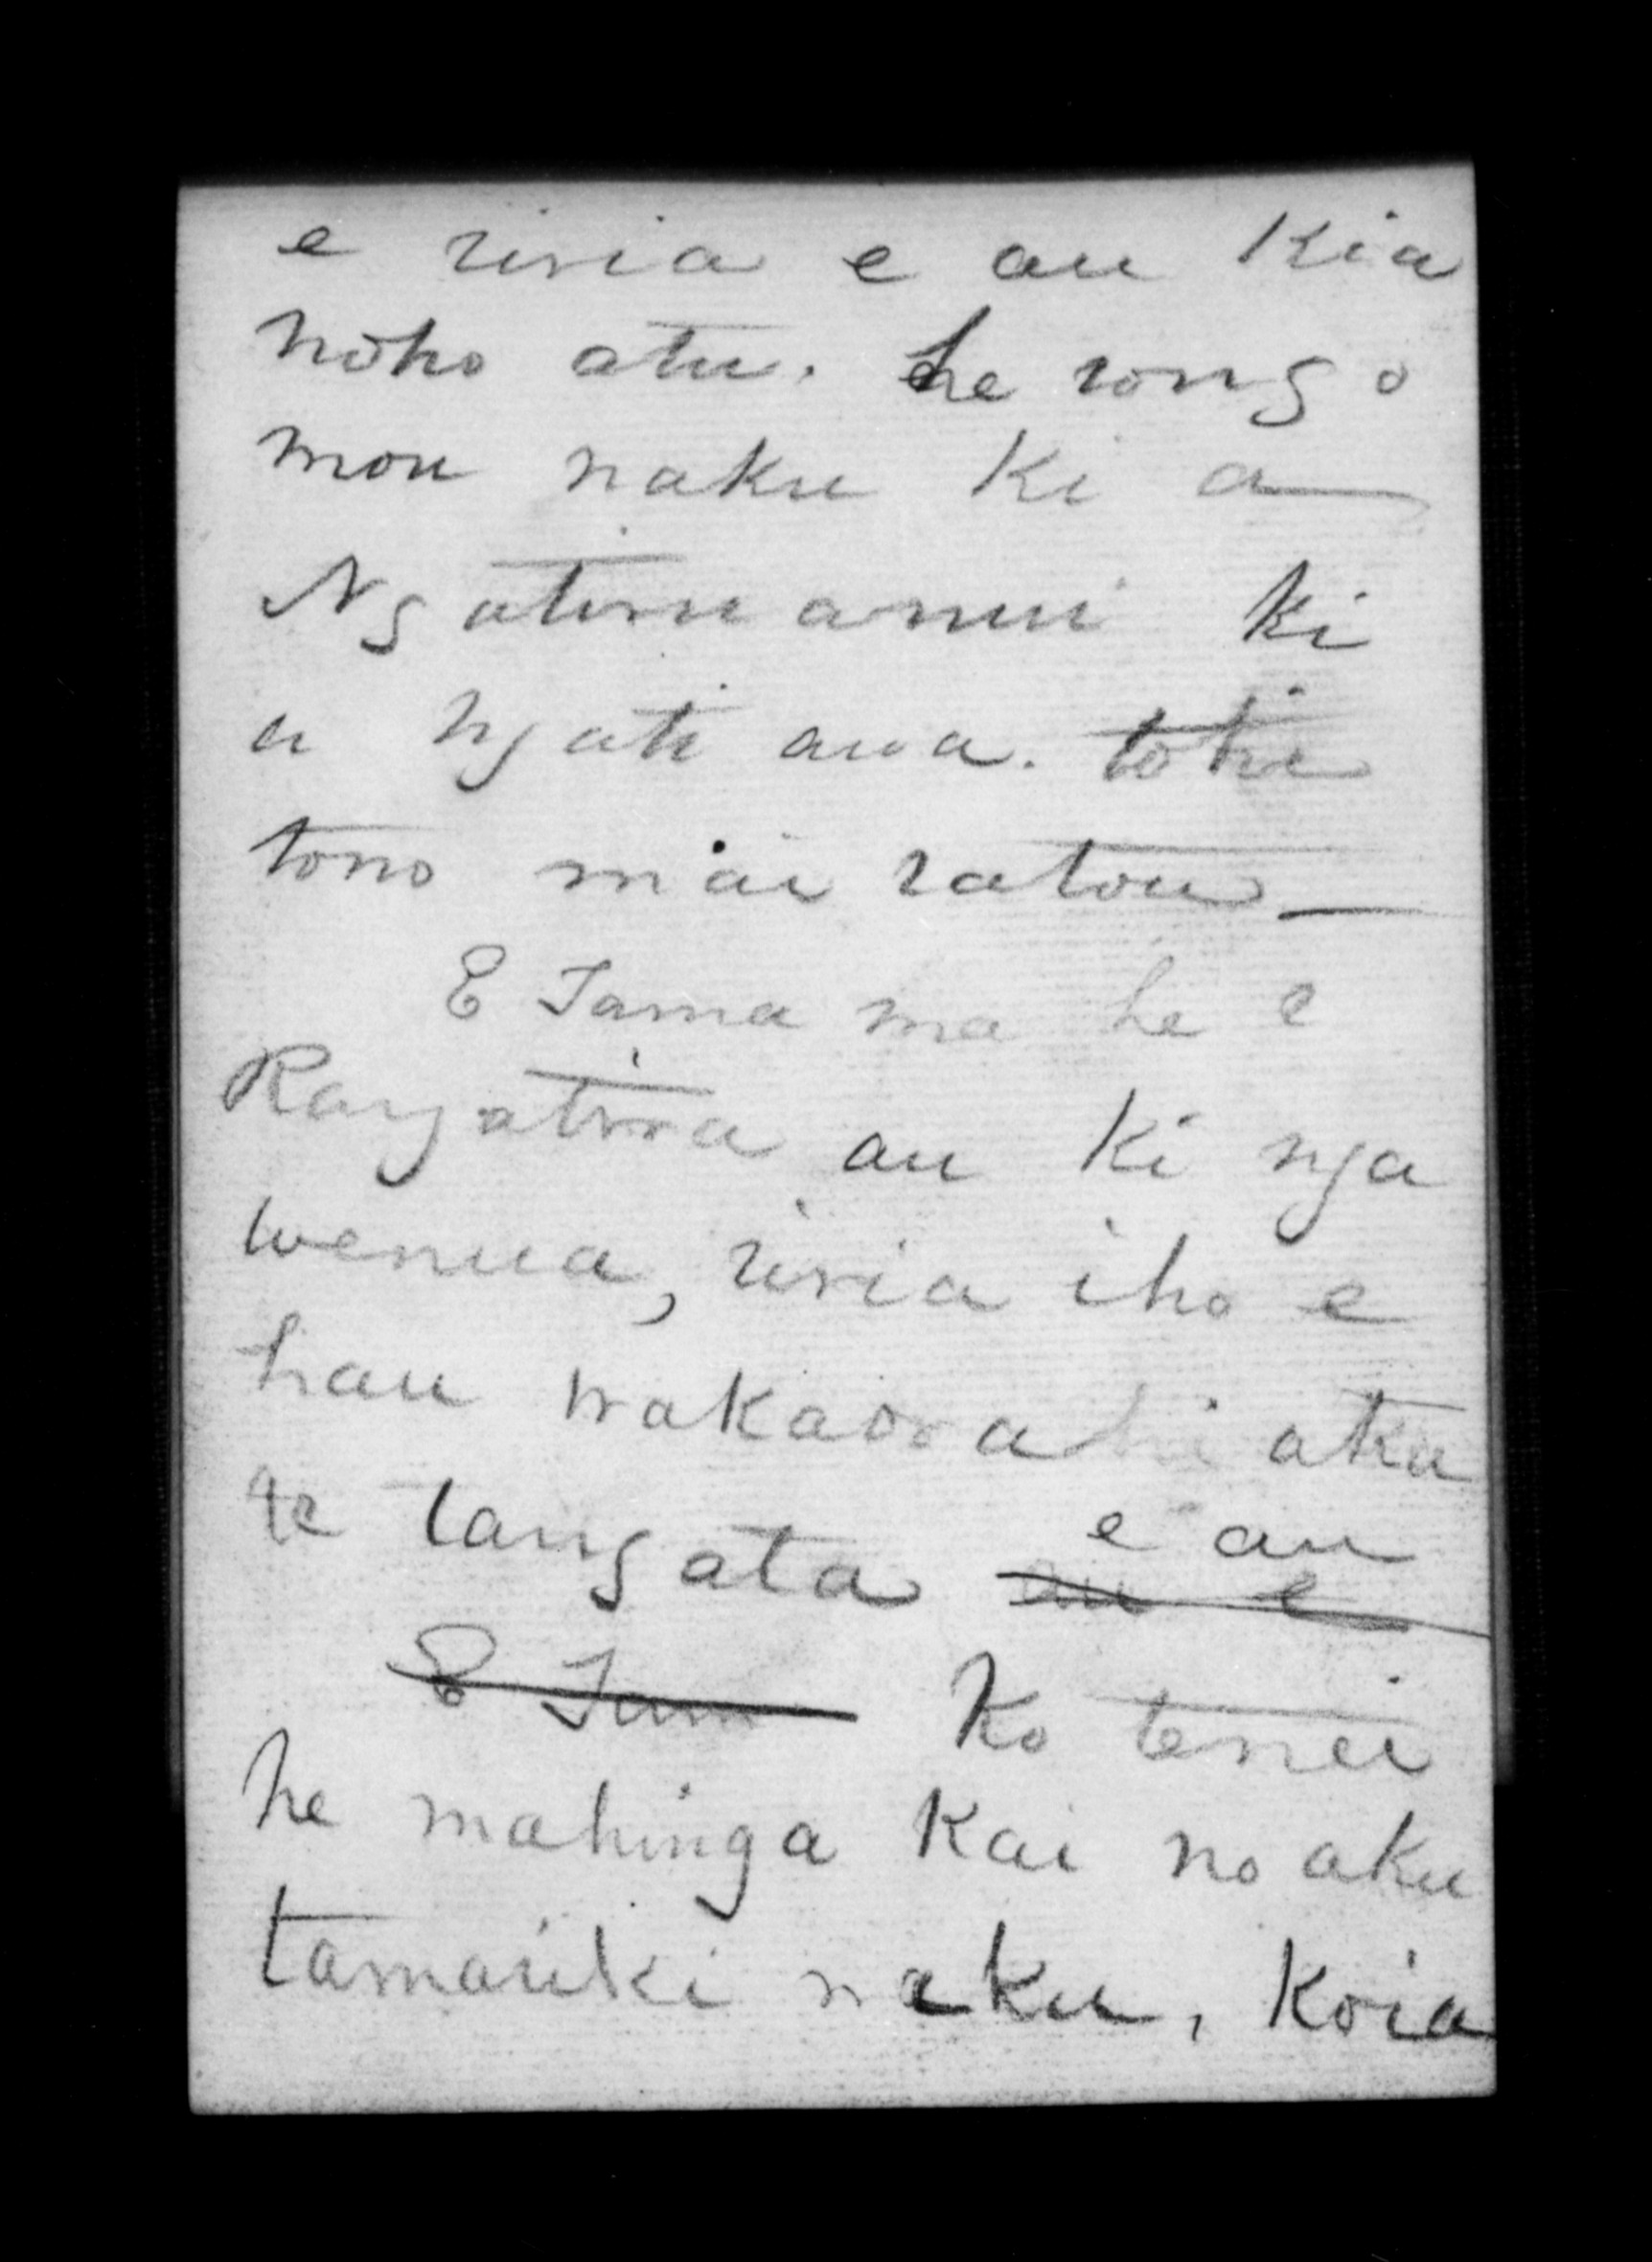 e riria e au Kia
noho atu. he rongo
mou naku Ki a
Ngatiruanui ki
a ngati awa. tohe
tono mai ratou
E Tama ma he
Rangatira au Ki nga
wenua, riria iho e
hau wakaora atu
te tangata e au
au e
E Tama Ko tenei
he mahinga Kai no aku
tamariki naku, Koia